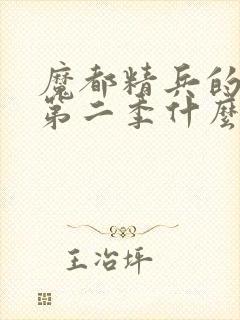 魔都精兵的
第二季什麼
王冶坪